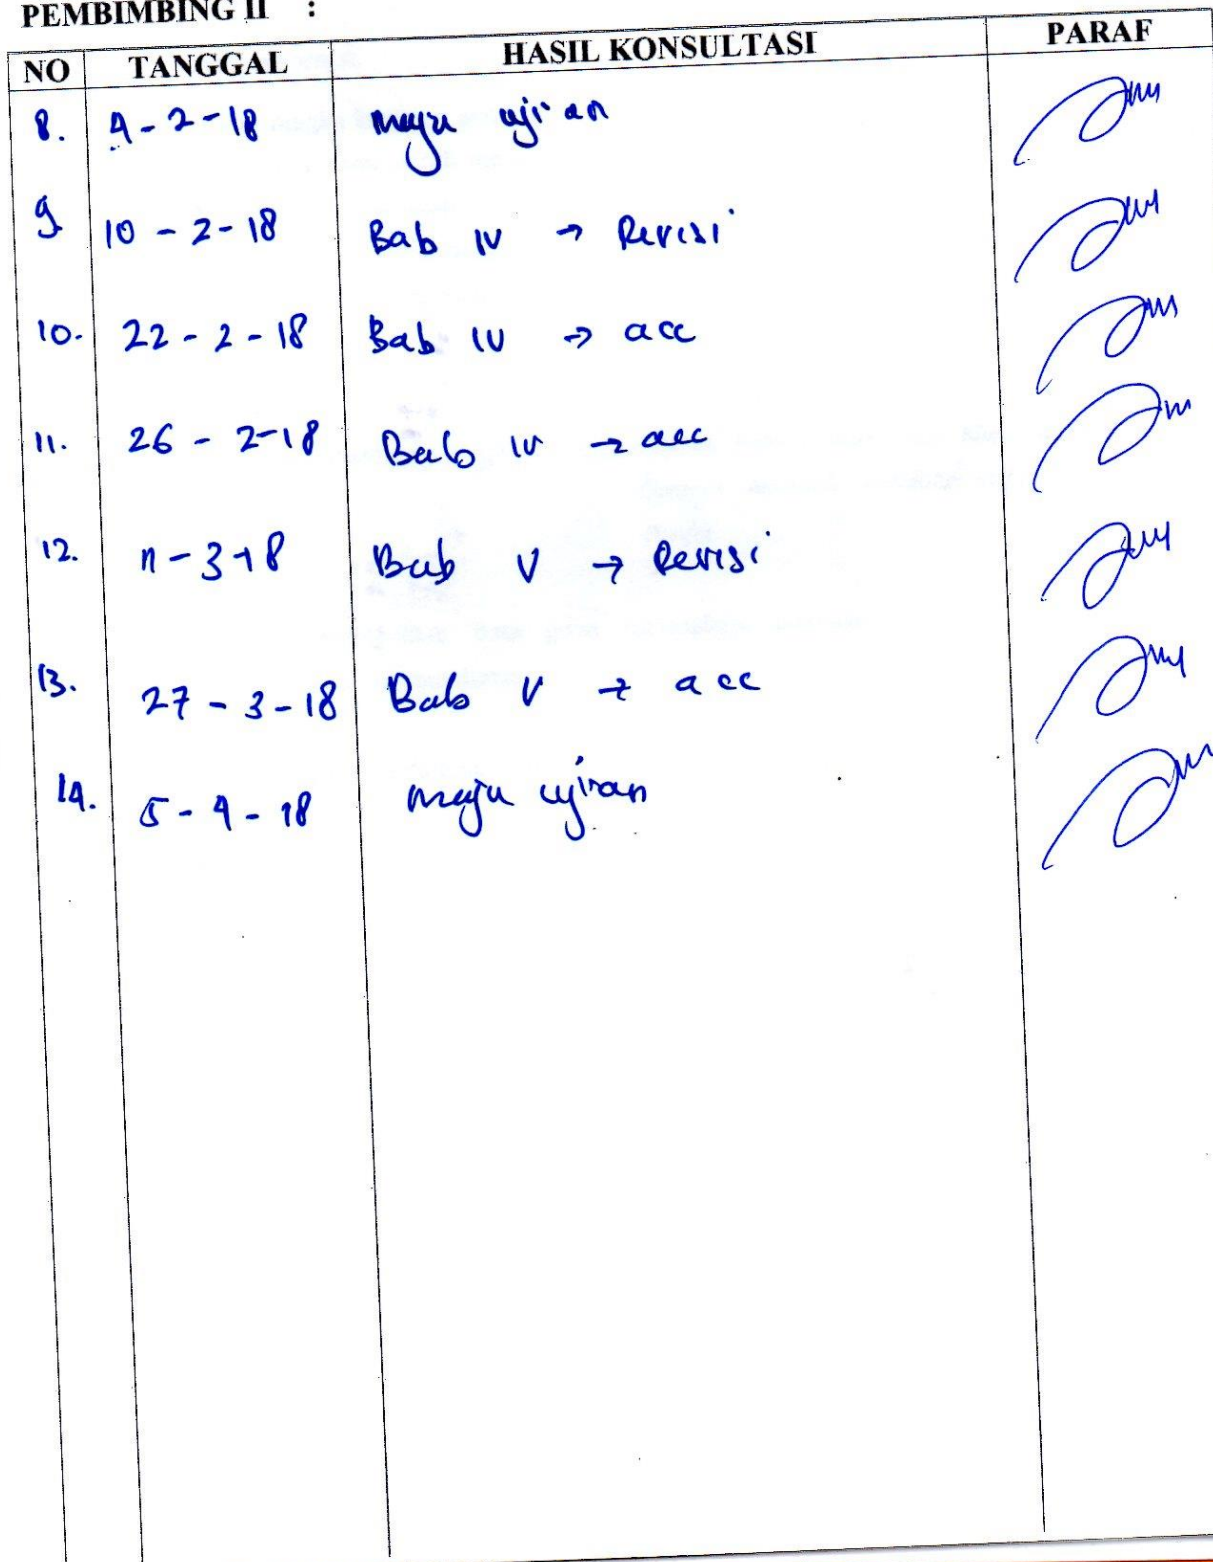 PEMBIMBING II :
NO TANGGAL HASIL KONSULTASI PARAF
8. 4-2-18 maju ujian
9 10-2-18 Bab IV → Revisi
10. 22-2-18 Bab IV → acc
11. 26-2-18 Bab IV → acc
12. 11-3-18 Bab V → Revisi
13. 27-3-18 Bab V → acc
14. 5-4-18 maju ujian